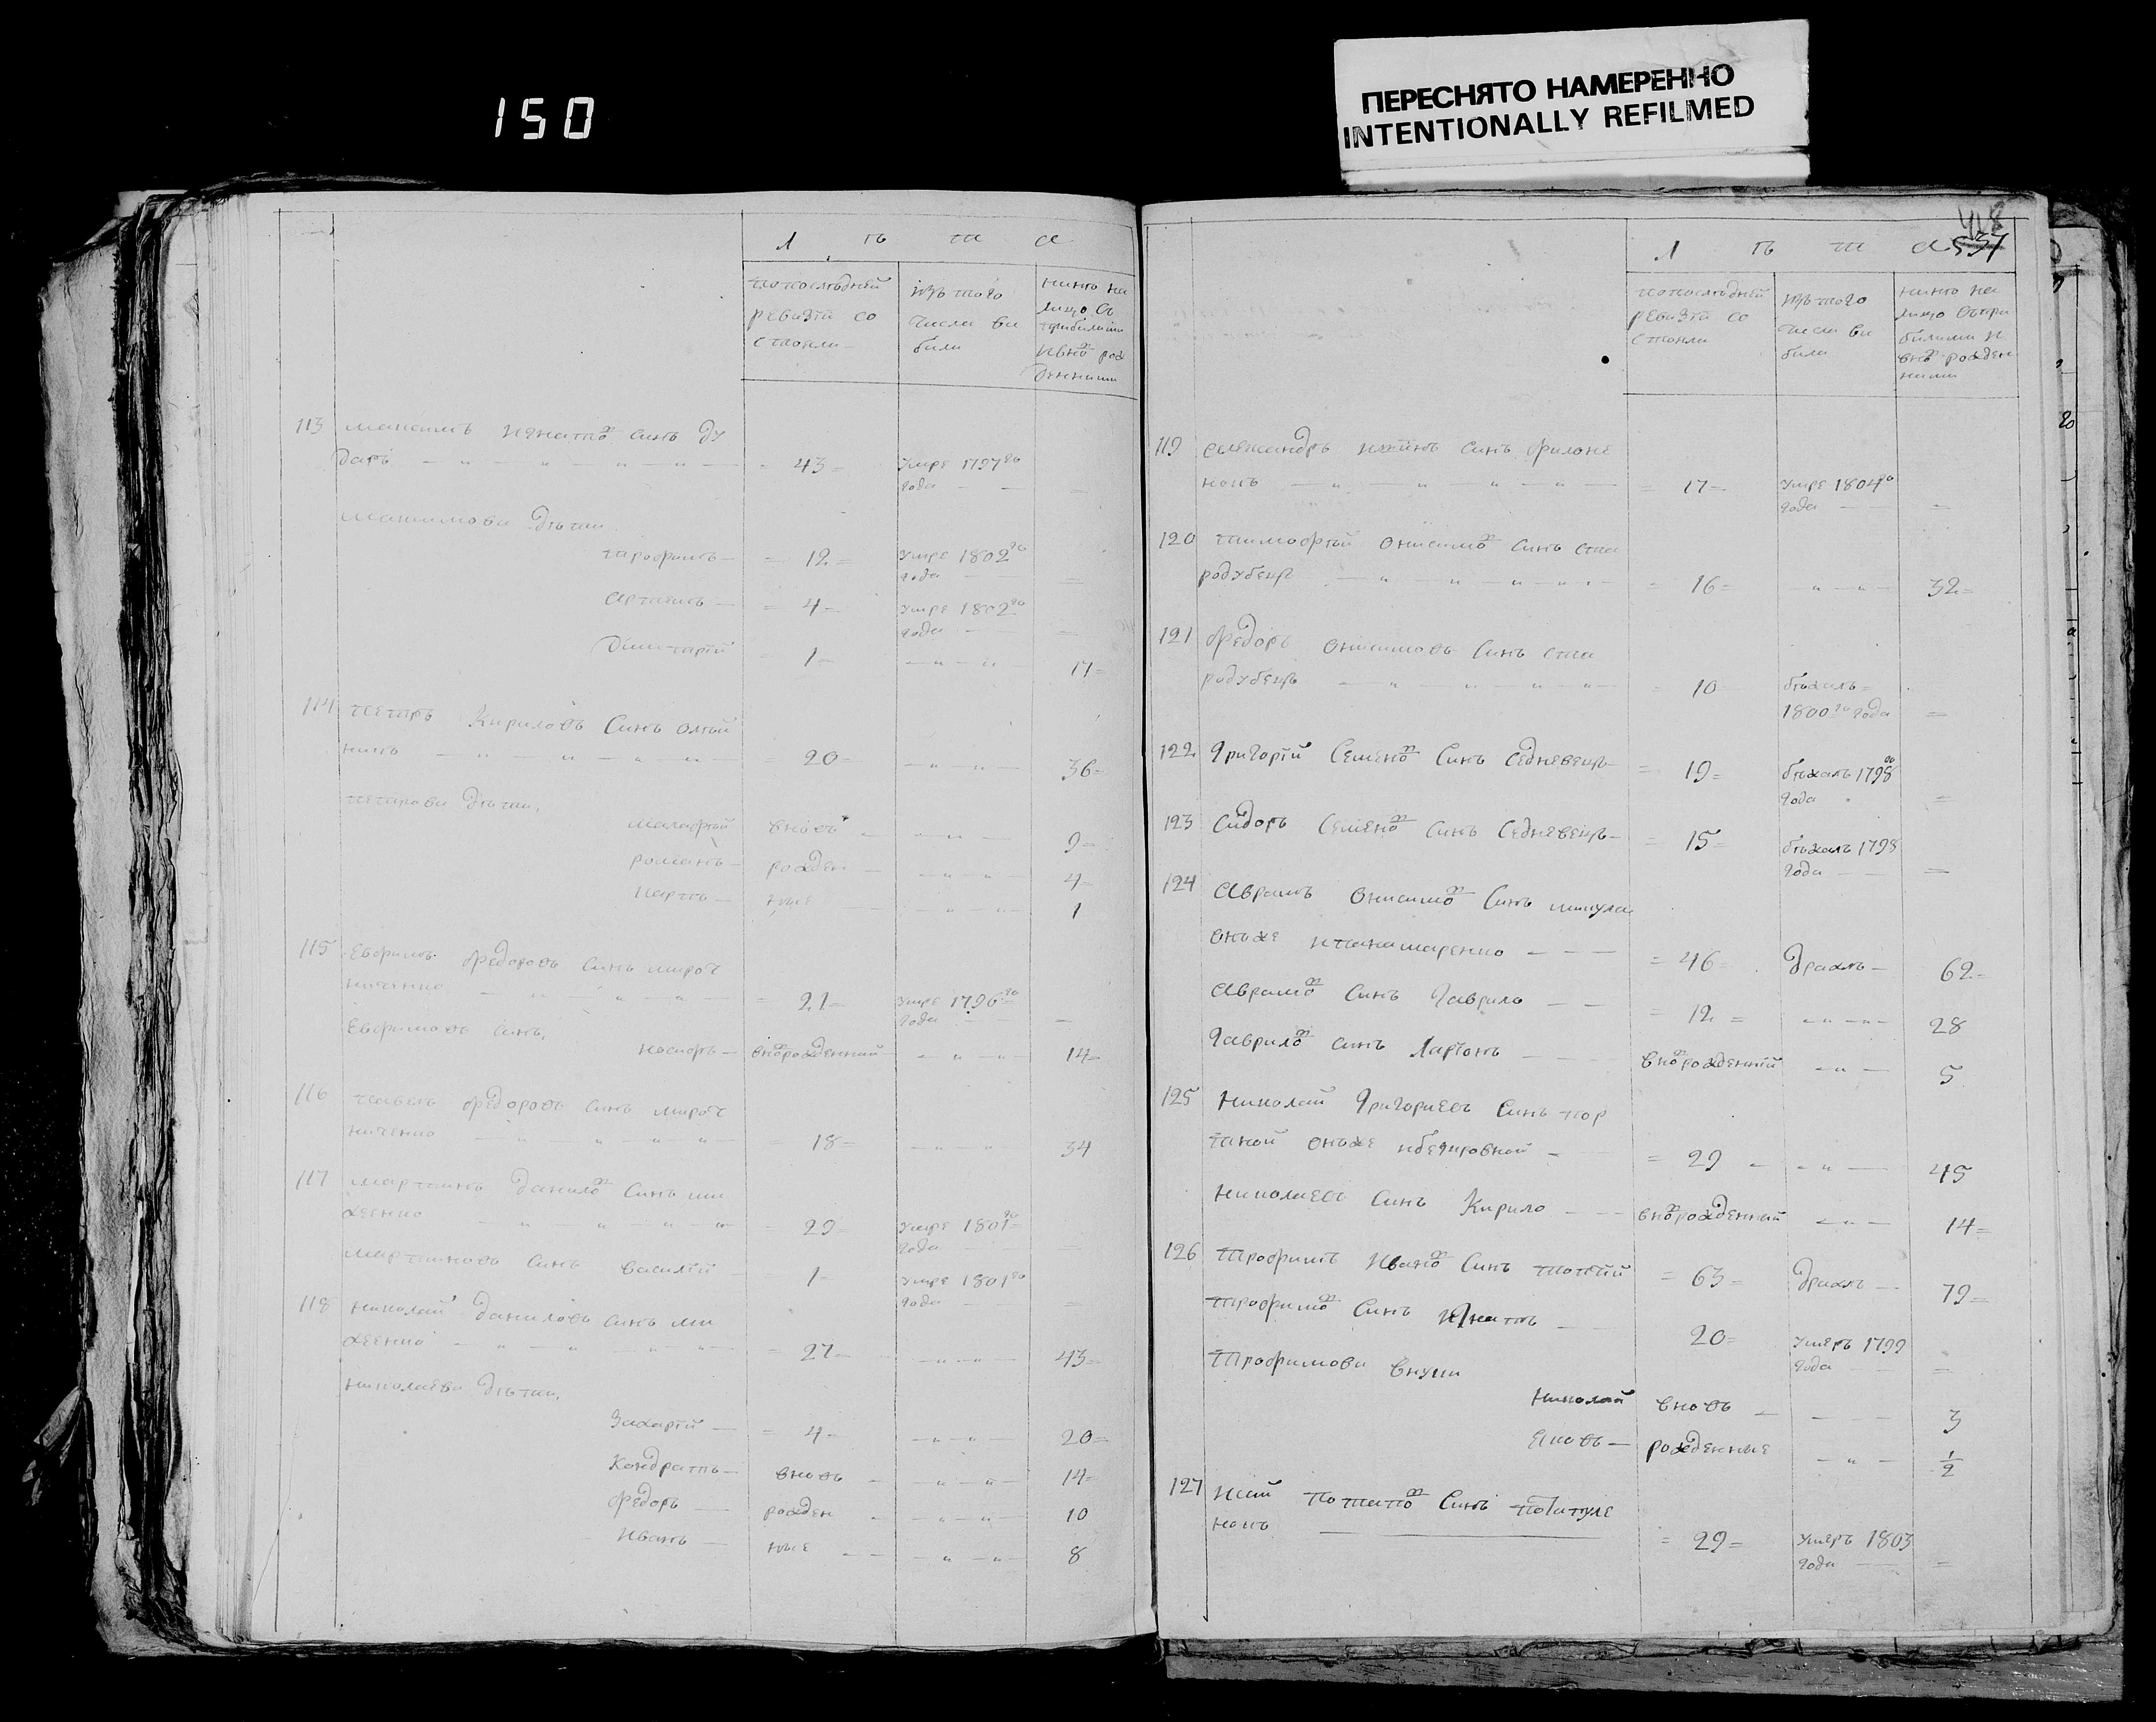 150
ПЕРЕСНЯТО НАМЕРЕННО
INTENTIONALLY REFILMED
Л ѣ т а
попослѣдней ревизіи со стояли
изъ того числа ви били
нинѣ на лицо съ прибилими ивнов рож денними
113 Максимъ Игнатов Синъ Ду
даръ 43 умре 1797го года
Максимови Дѣти
трофимъ 12 умре 1802го года
Артемъ 4 умре 1802го года
Димитрій 1 17
114 петръ Кириловъ Синъ олѣй
никъ 20 36
петрови Дѣти
малафѣй вновь 9
романъ рожден 4
карпъ ние 1
115 Евфимъ федоровъ Синъ мироч
ниченко 21 умре 1796го года
Евфимовъ Синъ
вноворожденний 14
116 павелъ федоровъ Синъ мироч
ниченко 18 34
117 Мартинъ Данилов Синъ ми
хеенко 29 умре 1801го года
Мартиновъ Синъ василій 1 умре 1801го года
118 николай Даниловъ Синъ ми
хеенко 27 43
николаеви Дѣти
Захарій 4 20
Кондратъ вновь 14
федоръ рожден 10
иванъ ние 8
418
537
Л ѣ т а
попослѣдней ревизіи со стояли
изъ того числа ви били
нинѣ на лицо съ при билими и внов рожден ними
119 Александръ Синъ филоне
нокъ 17 умре 1804го года
120 тимофѣй Онисимов Синъ ста
родубецъ 16 32
121 федоръ Онисимовъ Синъ ста
родубецъ 10 бѣжалъ 1800го года
122 Григорій Семенов Синъ Седневецъ 19 бѣжалъ 1798го года
123 Сидоръ Семенов Синъ Седневецъ 15 бѣжалъ 1798 года
124 Аврамъ Онисимов Синъ микула
онъже ипанамаренко 46 дряхлъ 62
Аврамов Синъ Гаврило 12 28
Гаврилов Синъ Ларіонъ вноворожденній 5
125 Николай Григориевъ Синъ пор
тной онъже 29 45
Николаевъ Синъ Кирило вноворожденний 14
126 Трофимъ Иванов Синъ 63 дряхлъ 79
Трофимов Синъ Игнатъ 20 умеръ 1799 года
Трофимови внуки
Николай вновь 3
Яковъ рожденные 1/2
127 потапов Синъ
нокъ 29 умеръ 1803 года